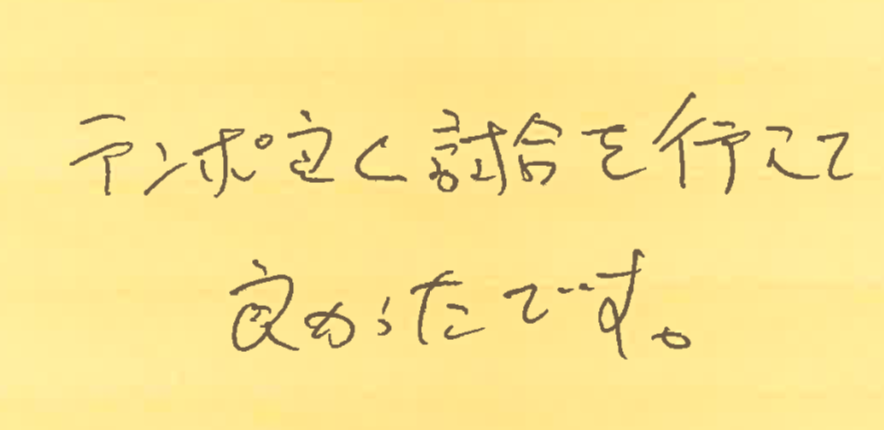 テンポ良く試合を行えて
良かったです。